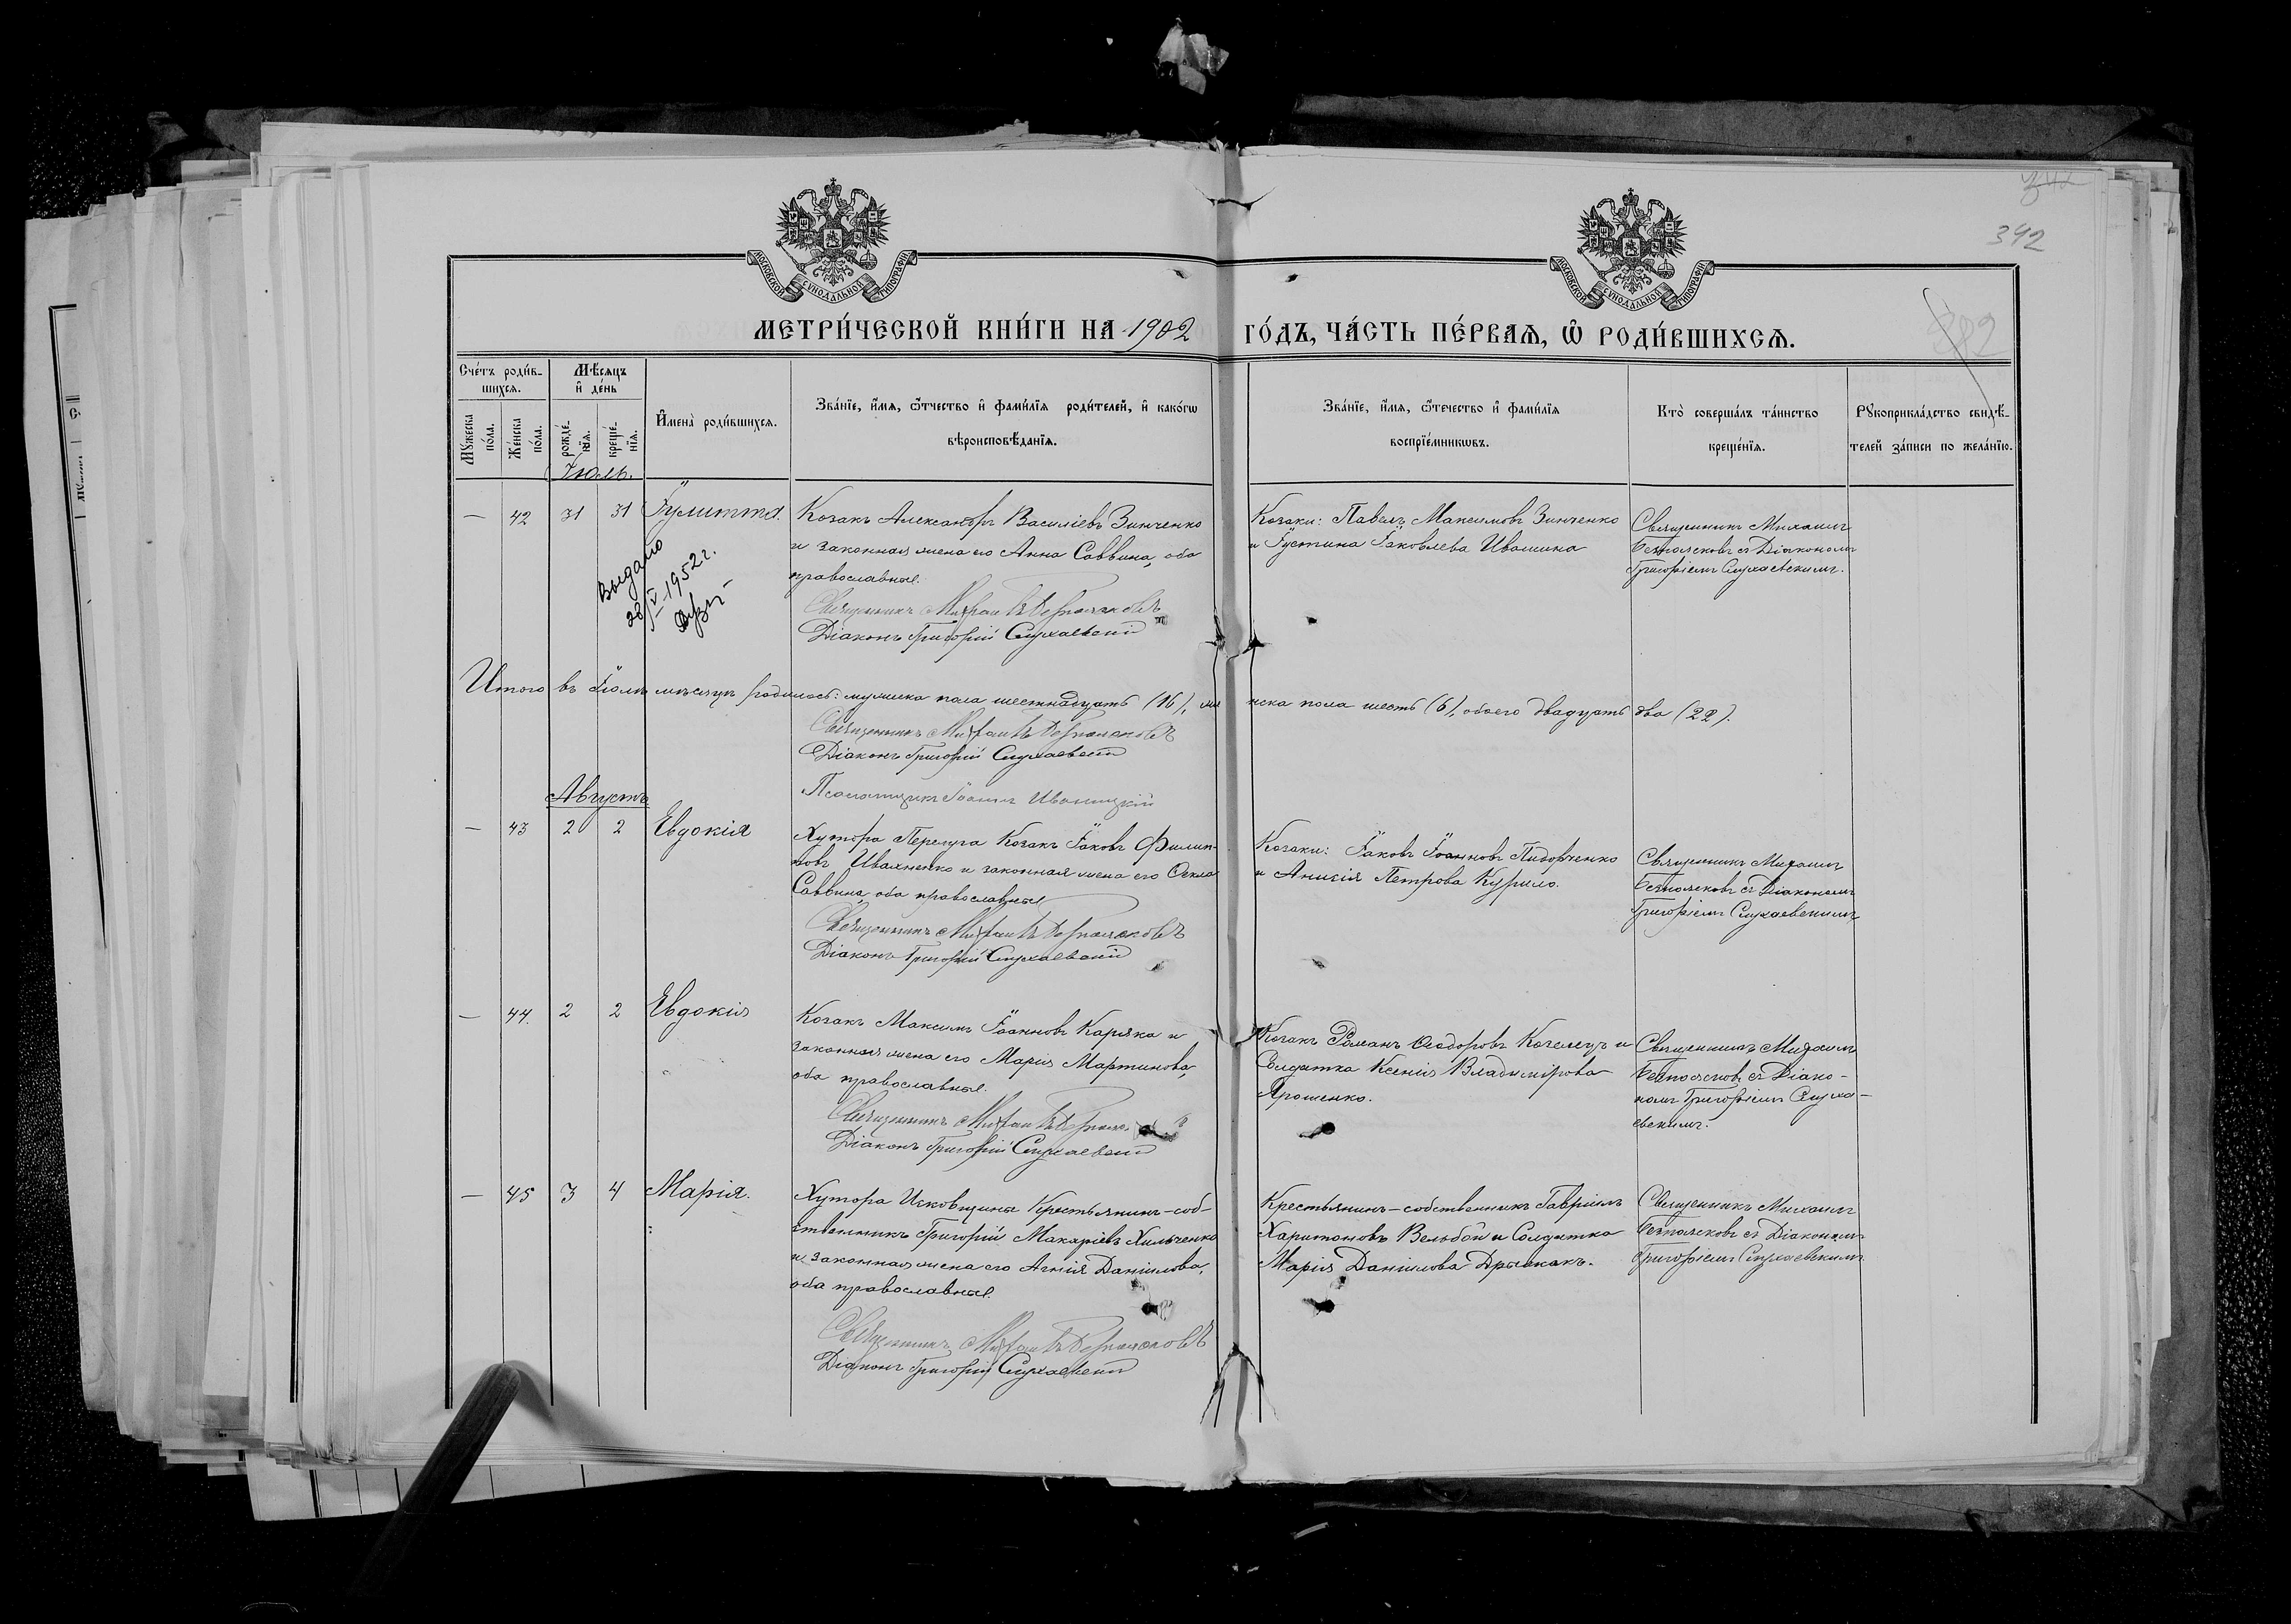 342
МОСКОВСКОЙ СУНОДАЛЬНОЙ ТИПОГРАФІИ
МОСКОВСКОЙ СУНОДАЛЬНОЙ ТИПОГРАФІИ
МЕТРИ́ЧЕСКОЙ КНИ́ГИ НА 1902 ГО́ДЪ, ЧА́СТЬ ПЕ́РВАѦ, Ѡ҆ РОДИ́ВШИХСѦ.
Сче́тъ роди́в-
шихся.
Мѣ́сяцъ
и҆ де́нь
Мꙋ́жеска
по́ла.
Же́нска
по́ла.
рожде́-
нїя.
креще́-
нїя.
И҆мена̀ роди́вшихся.
Зва́нїе, и҆́мя, ѻ҆́тчество и҆ фами́лїя роди́телей, и҆ како́гѡ
вѣроисповѣ́данїя.
Зва́нїе, и҆́мя, ѻ҆́течество и҆ фами́лїя
воспрїе́мникѡвъ.
Кто̀ соверша́лъ та́инство
креще́нїя.
Рꙋкоприкла́дство свидѣ́-
телей за́писи по жела́нїю.
Іюль.
— 42 31 31 Іулитта.
Козакъ Александръ Василіевъ Зинченко
и законная жена его Анна Саввина, оба
православные.
Священникъ Михаилъ Безпалековъ
Діаконъ Григорій Слухаевскій
Козаки: Павелъ Максимовъ Зинченко
и Іустина Іаковлева Ивашина
Священникъ Михаилъ
Безпалековъ съ Діакономъ
Григоріемъ Слухаевскимъ.
Выдано
28/V-1952 г.
Итого въ Іюлѣ мѣсяцѣ родилось: мужеска пола шестнадцать (16), женска пола шесть (6), обоего двадцать два (22).
Священникъ Михаилъ Безпалековъ
Діаконъ Григорій Слухаевскій
Псаломщикъ Іоаннъ Иваницкій
Августъ
— 43 2 2 Евдокія
Хутора Перелуга Козакъ Іаковъ Филип-
повъ Ивахненко и законная жена его Ѳекла
Саввина, оба православные
Священникъ Михаилъ Безпалековъ
Діаконъ Григорій Слухаевскій
Козаки: Іаковъ Іоанновъ Пидорченко
и Анисія Петрова Курило.
Священникъ Михаилъ
Безпалековъ съ Діакономъ
Григоріемъ Слухаевскимъ
— 44. 2 2 Евдокія
Козакъ Максимъ Іоанновъ Каряка и
законная жена его Марія Мартинова,
оба православные.
Священникъ Михаилъ
Діаконъ Григорій Слухаевскій
Козакъ Романъ Ѳеодоровъ Кочелецъ и
Солдатка Ксенія Владимірова
Ярошенко.
Священникъ Михаилъ
Безпалековъ съ Діако-
номъ Григоріемъ Слуха-
евскимъ.
— 45 3 4 Марія.
Хутора Исковщины Крестьянинъ-соб-
ственникъ Григорій Макаріевъ Хильченко
и законная жена его Агнія Даніилова,
оба православные.
Священникъ Михаилъ Безпалековъ
Діаконъ Григорій Слухаевскій
Крестьянинъ-собственникъ Гавріилъ
Харитоновъ Вельбой и Солдатка
Марія Даніилова
Священникъ Михаилъ
Безпалековъ съ Діакономъ
Григоріемъ Слухаевскимъ